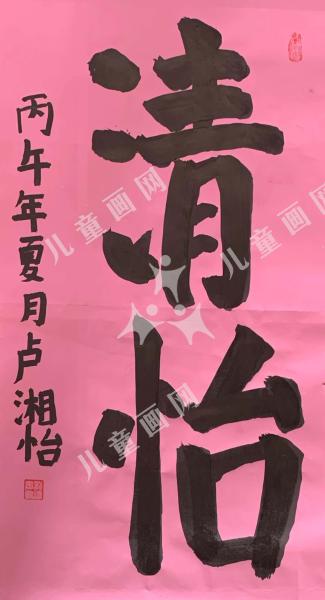 清怡
丙午年夏月卢湘怡
儿童画网
儿童画网
儿童画网
儿童画网